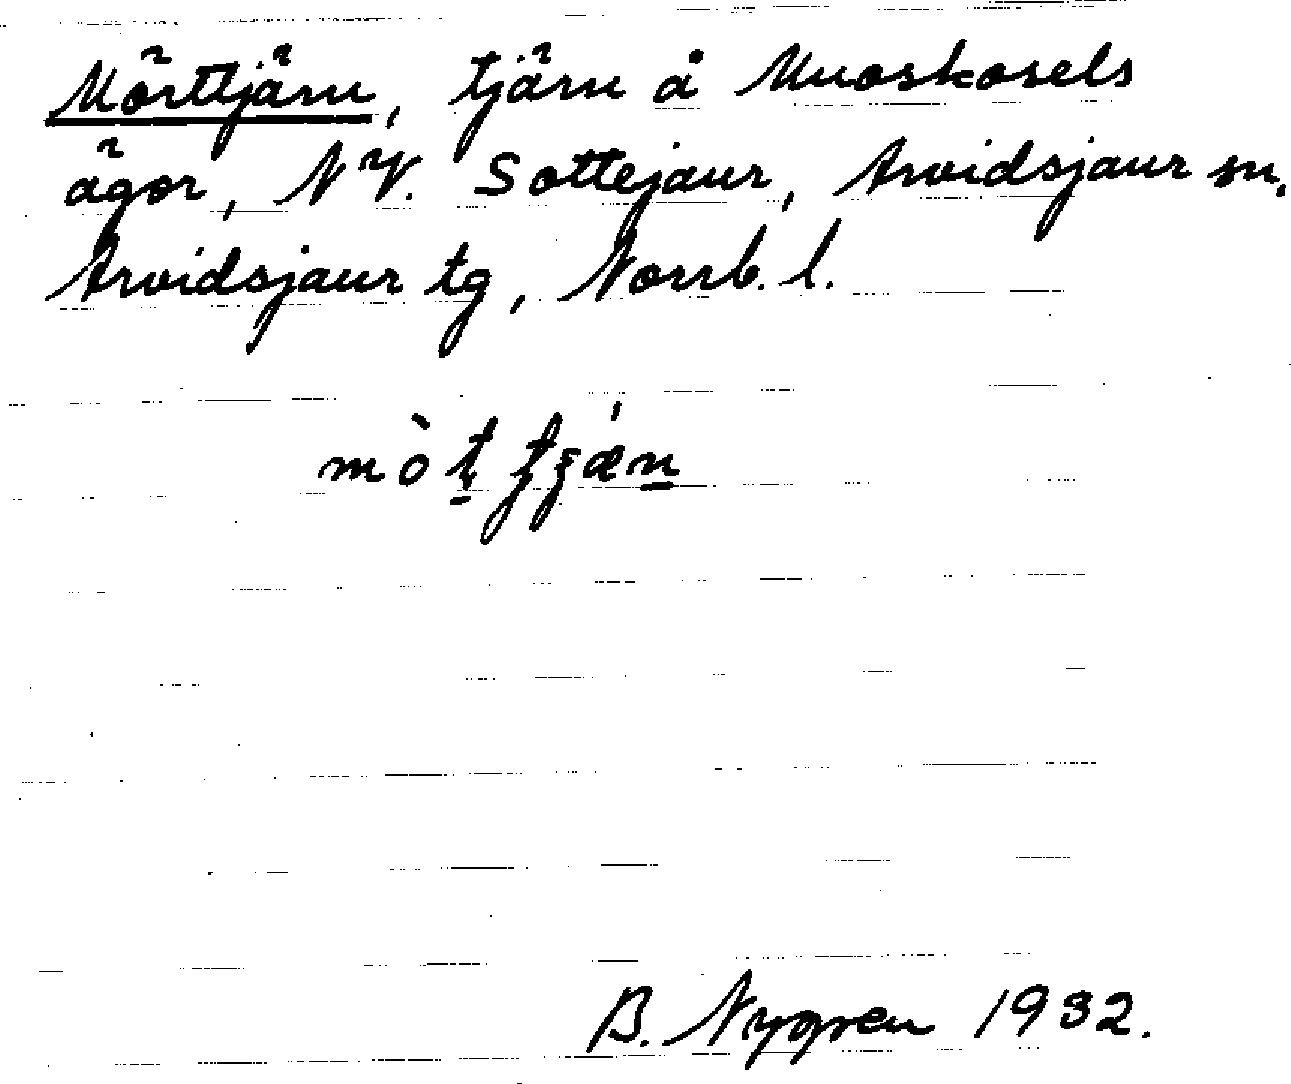 Mörttjärn, tjärn å Muoskosels
ägor, NV. Sottejaur, Arvidsjaur sn,
Arvidsjaur tg, Norrb. l.
B. Nygren 1932.